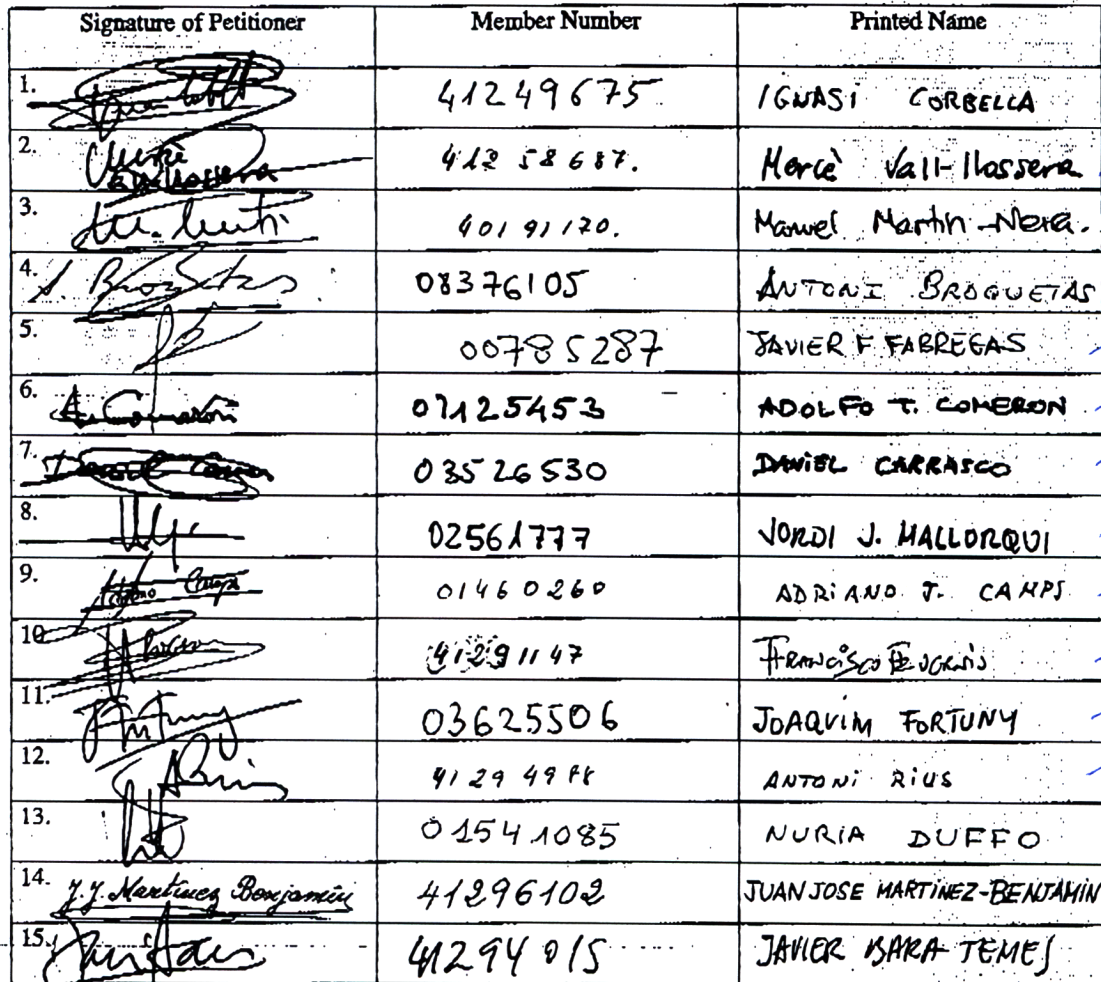 Signature of Petitioner Member Number Printed Name
1. 41249675 IGNASI CORBELLA
2. Mercè Vall-llossera 41258687. Mercè Vall-llossera
3. M. Martí 40191170. Manuel Martín-Neira.
4. A. Broquetas 08376105 ANTONI BROQUETAS
5. 00785287 JAVIER F. FABREGAS
6. A. Comerón 07125453 ADOLFO T. COMERON
7. Daniel Carrasco 03526530 DANIEL CARRASCO
8. 02561777 JORDI J. MALLORQUI
9. Adriano Camps 01460260 ADRIANO J. CAMPS
10. 41291147 FRANCISCO
11. Fortuny 03625506 JOAQUIM FORTUNY
12. ARius 41294988 ANTONI RIUS
13. 01541085 NURIA DUFFO
14. J.J. Martínez Benjamín 41296102 JUAN JOSE MARTINEZ-BENJAMIN
15. 41294015 JAVIER BARA TEMES